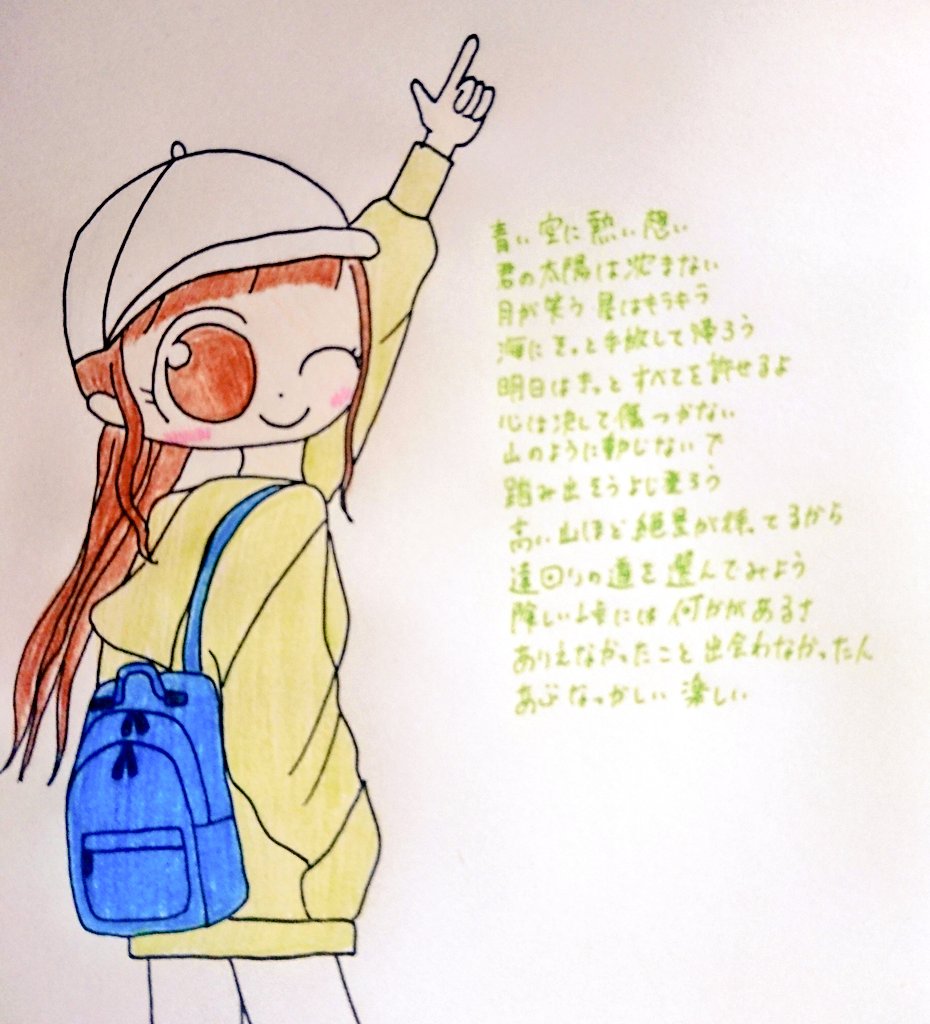 青い空に熱い想い
君の太陽は沈まない
月が笑う 星はキラキラ
海にきっと手放して帰ろう
明日はきっとすべてを許せるよ
心は決して傷つかない
山のように動じないで
踏み出そうよじ登ろう
高い山ほど絶景が待ってるから
遠回りの道を選んでみよう
険しい道には何かがあるさ
ありえなかったこと出会わなかったん
あぶなっかしい 楽しい